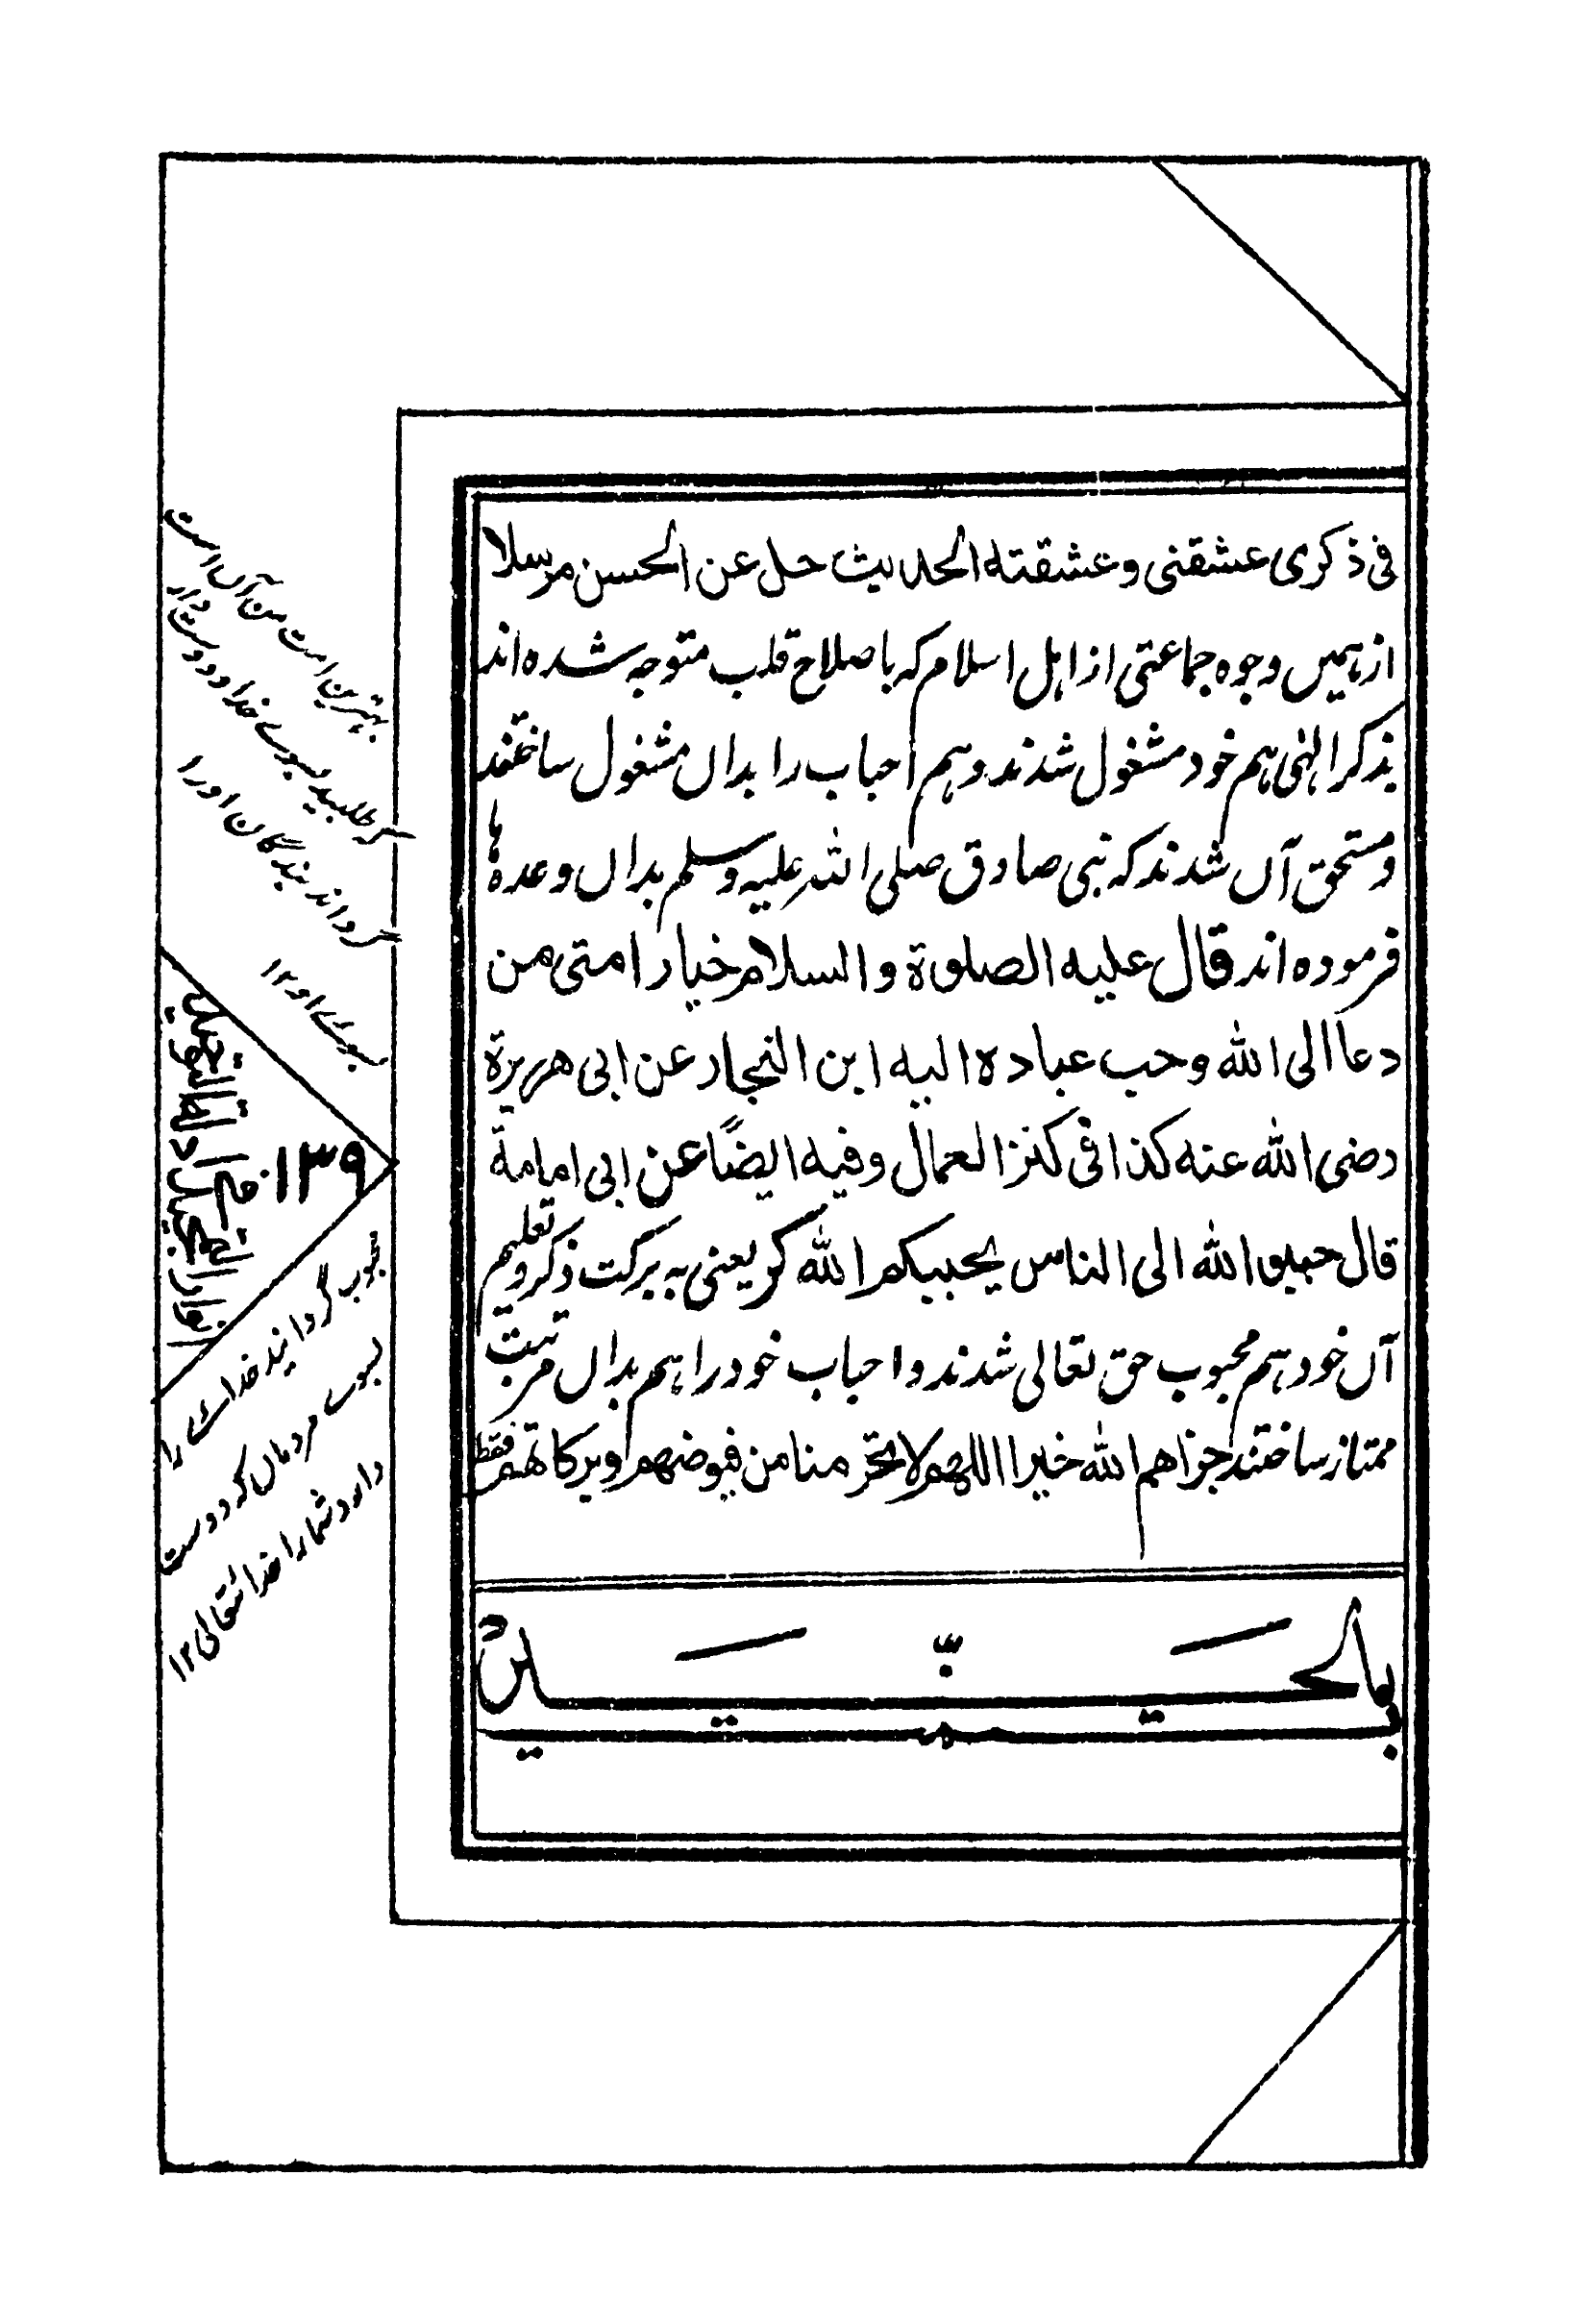 فی ذکری عشقنی وعشقته الحدیث حل عن الحسن مرسلا
ازہمیں وجوہ جماعتی از اہل اسلام کہ باصلاح قلب متوجہ شدہ اند
بذکر الہٰی ہم خود مشغول شدند وہم احباب را بداں مشغول ساختند
ومستحق آں شدند کہ نبی صادق صلی اللہ علیہ وسلم بداں وعدہ ہا
فرمودہ اند قال علیه الصلوة والسلام خیار امتی من
دعا الی الله وحب عباده الیه ابن النجار عن ابی هریرة
رضی الله عنه کذا فی کنز العمال وفیه ایضًا عن ابی امامة
قال حببوا الله الی الناس یحببکم الله کر یعنی بہ برکت ذکر وتعلیم
آں خود ہم محبوب حق تعالی شدند واحباب خود را ہم بداں مرتبت
ممتاز ساختند جزاهم الله خیرا اللهم لا تحرمنا من فیوضهم وبرکاتهم فقط
بہترین امت من آں است
کہ طلبید بسوے خدا و دوست دار
گرداند بندگان او را
بسوے او ۱۲
۱۳۹
محبوب گردانید خداے را
بسوے مردماں کہ دوست
دارد شما را خدا تعالی ۱۲